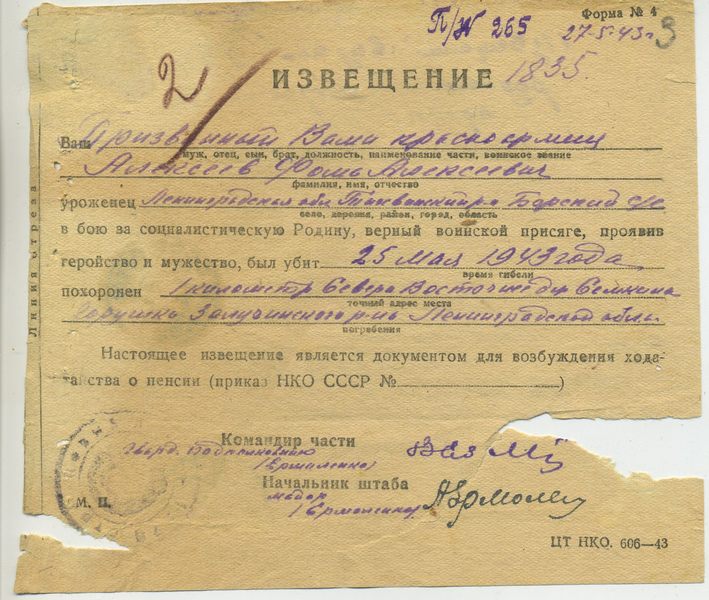 П/№ 265
Форма № 4
27-5-43 г.
3
2
ИЗВЕЩЕНИЕ
1835.
Ваш Призванный Вами красноармеец
муж, отец, сын, брат, должность, наименование части, воинское звание
Алексеев Фома Алексеевич
фамилия, имя, отчество
уроженец Ленинградская обл Борский с/с
село, деревня, район, город, область
в бою за социалистическую Родину, верный воинской присяге, проявив
геройство и мужество, был убит 25 мая 1943 года
время гибели
похоронен 1 километр Северо Восточнее дер
точный адрес места
Горушка Залучинского р-на Ленинградской обл.
погребения
Настоящее извещение является документом для возбуждения хода-
тайства о пенсии (приказ НКО СССР № )
Линия отреза
Командир части
гвард. Подполковник
Начальник штаба
майор
М. П.
ЦТ НКО. 606—43